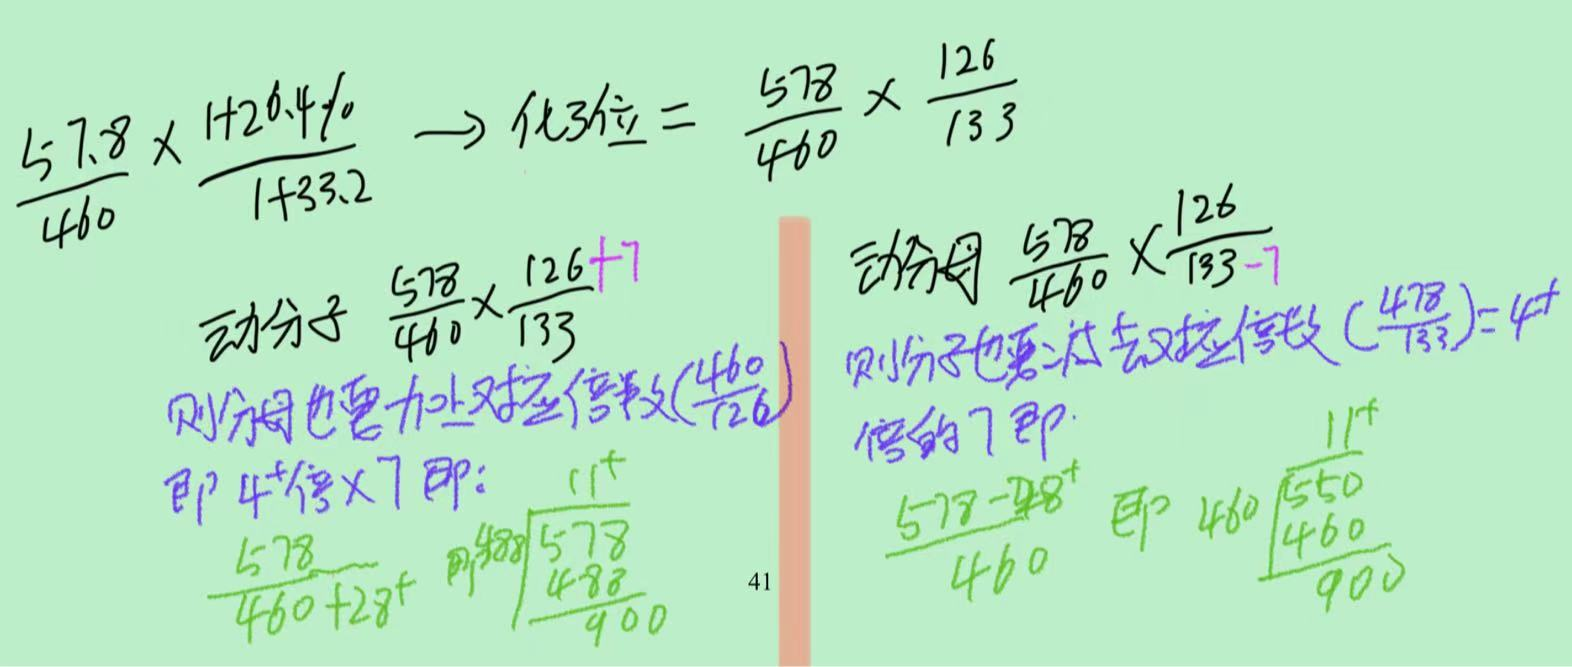 57.8/460 × 1+26.4%/1+33.2 → 化3位 = 578/460 × 126/133
动分子 578/460 × 126+7/133
则分母也要加上对应倍数(460/126)
即 4⁺倍×7 即:
578/460+28⁺ 即 488 578 11⁺
488
900
41
动分母 578/460 × 126/133-7
则分子也要减去对应倍数(478/133)=4⁺
倍的7即.
578-28⁺/460 即 460 550 11⁺
460
900